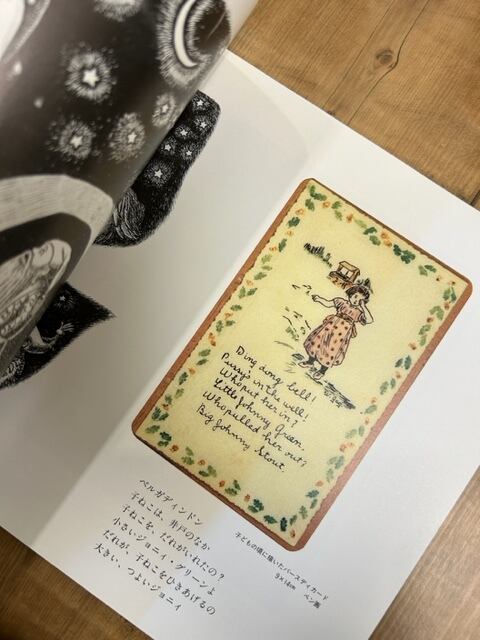 Ding dong bell!
Pussy's in the well!
Who put her in?
Little Johnny Green.
Who pulled her out?
Big Johnny Stout.
子どもの頃に描いたバースディカード
9×14cm ペン画
ベルガディンドン
子ねこは、井戸のなか
子ねこを、だれがいれたの？
小さいジョニイ・グリーンよ
だれが、子ねこをひきあげるの
大きい、つよいジョニィ